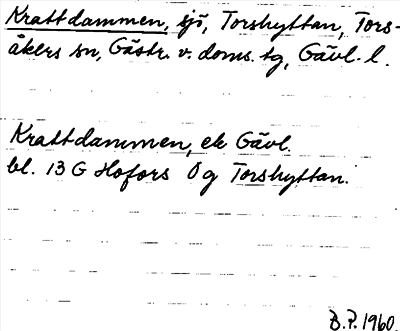 Krattdammen, sjö, Torshyttan, Tors-
åkers sn, Gästr. v. doms. tg, Gävl. l.
Krattdammen, ek Gävl.
bl. 13 G Hofors Ö g Torshyttan.
B.P. 1960.